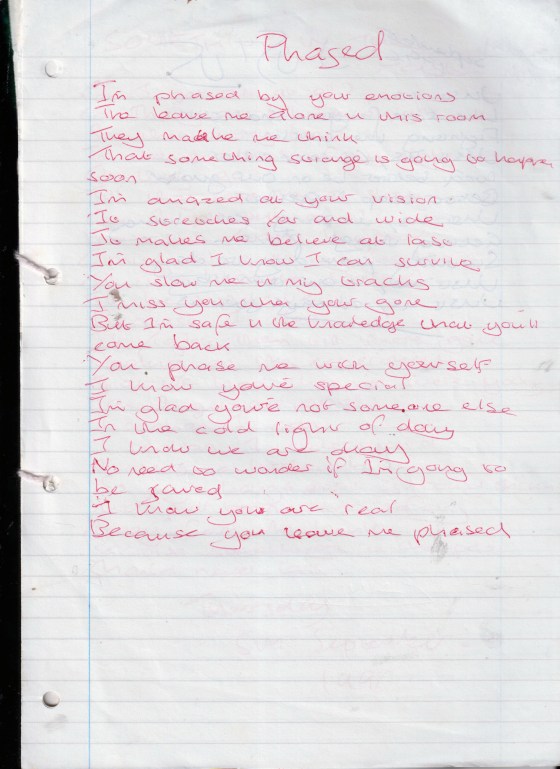 Phased
I'm phased by your emotions
The leave me alone n this room
They make me think
That something strange is going to happen
soon
I'm amazed at your vision
It stretches far and wide
It makes me believe at last
I'm glad I know I can survive
You slow me n my tracks
I miss you when your gone
But I'm safe n the knowledge that you'll
come back
You phase me with yourself
I know you're special
I'm glad you're not someone else
In the cold light of day
I know we are okay
No need to wonder if I'm going to
be saved
I know you are real
Because you leave me phased